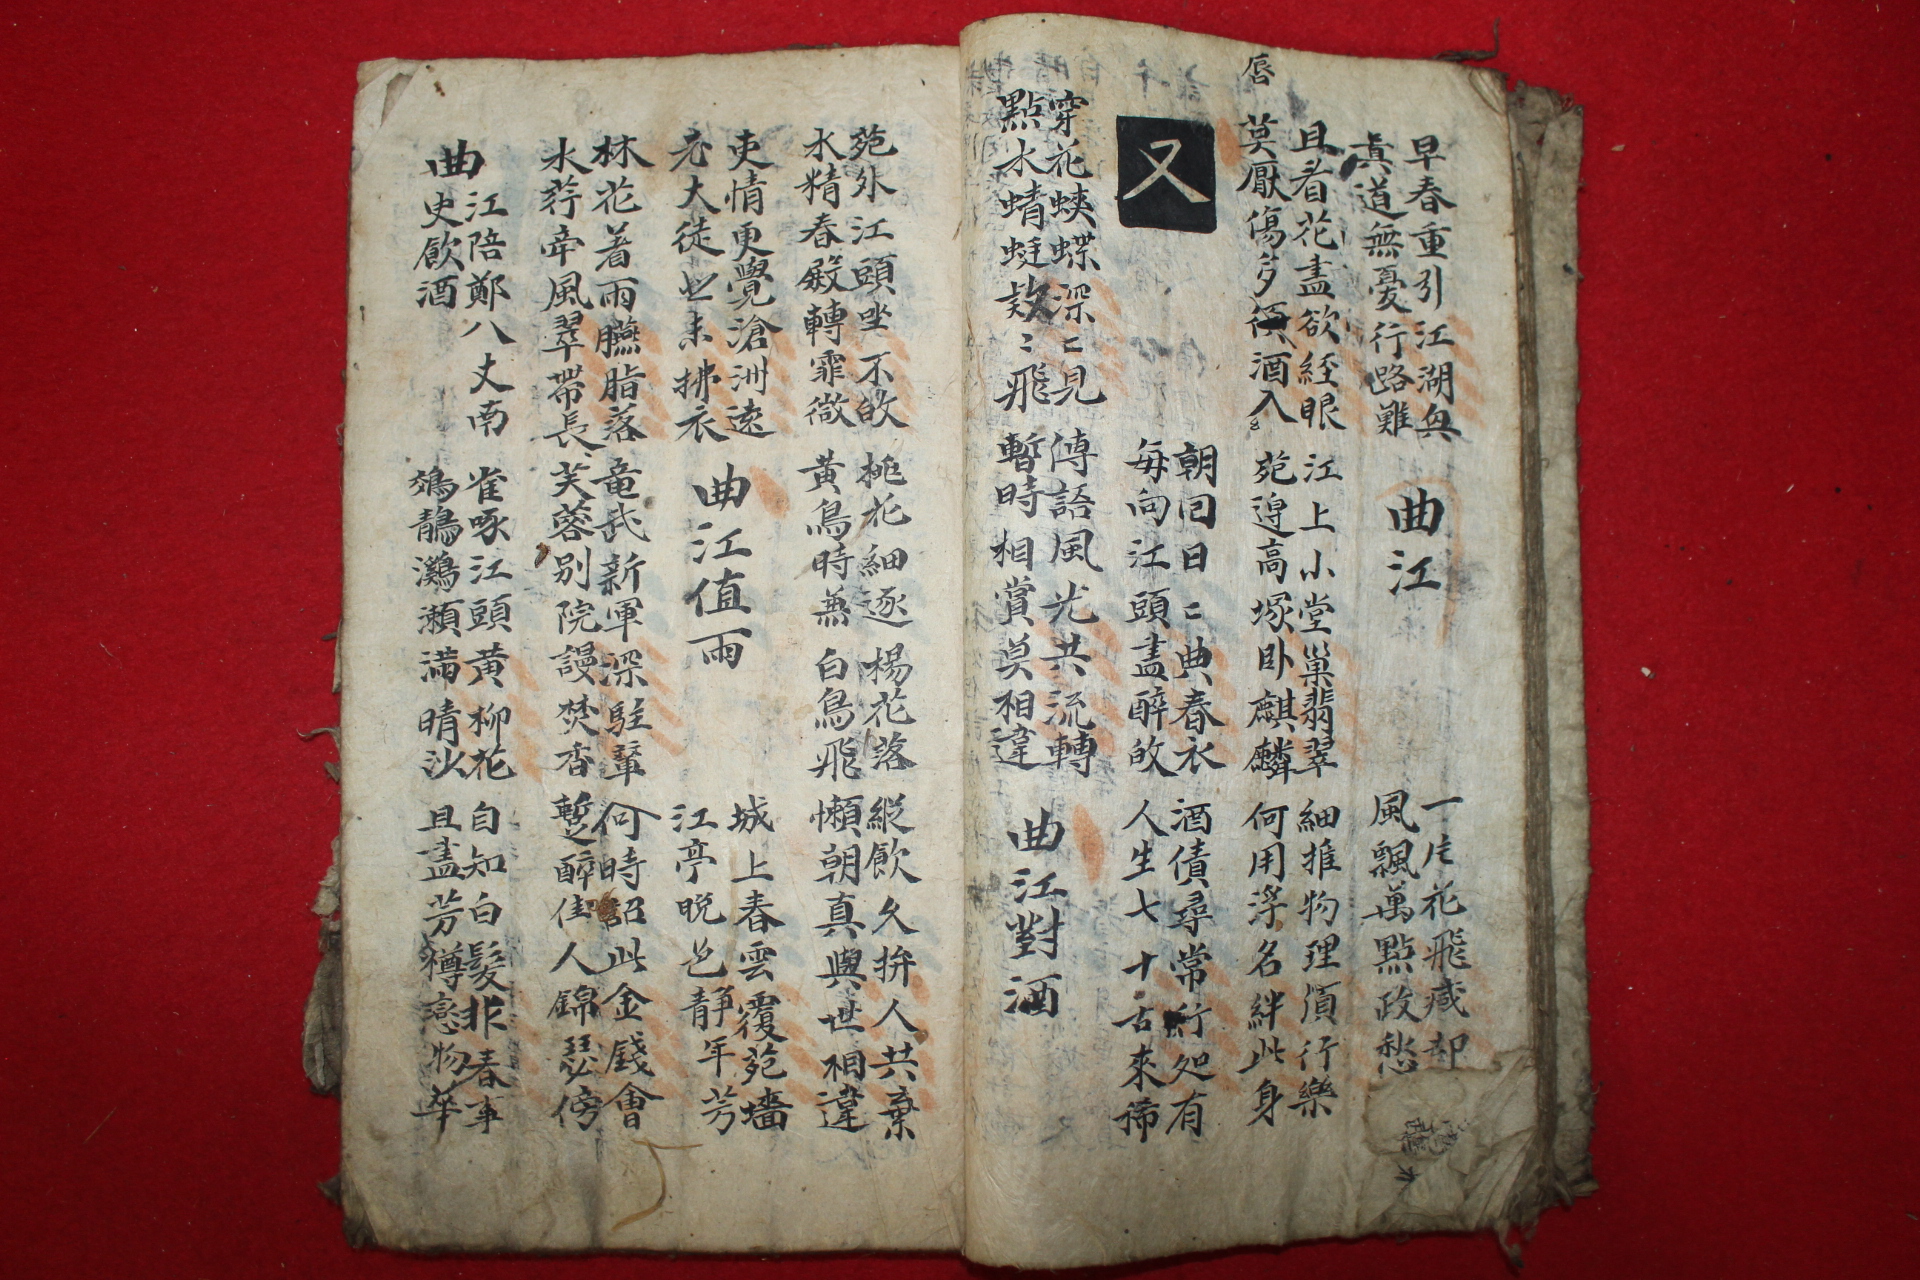 早春重引江湖興
真道無憂行路難
曲江
一片花飛减却
風飄萬點政愁
且看花盡欲經眼
莫厭傷多須酒入唇
江上小堂巢翡翠
苑邊高塚卧麒麟
細推物理須行樂
何用浮名絆此身
又
朝回日〻典春衣
每向江頭盡醉敀
酒債尋常行処有
人生七十古來稀
穿花蛺蝶深〻見
點水蜻蜓款〻飛
傳語風光共流轉
暫時相賞莫相違
曲江對酒
苑外江頭坐不敀
水精春殿轉霏微
桃花細逐楊花落
黄鳥時兼白鳥飛
縱飮久拚人共棄
懶朝真與世相違
吏情更覺滄洲遠
老大徒悲未拂衣
曲江值雨
城上春雲覆苑墻
江亭晚色靜年芳
林花着雨臙脂落
水荇牽風翠帶長
竜武新軍深駐輦
芙蓉別院謾焚香
何時詔此金錢會
暫醉佳人錦瑟傍
曲江陪鄭八丈南
史飮酒
雀啄江頭黄柳花
鵁鶄鸂瀬滿晴沙
自知白髮非春事
且盡芳樽戀物華